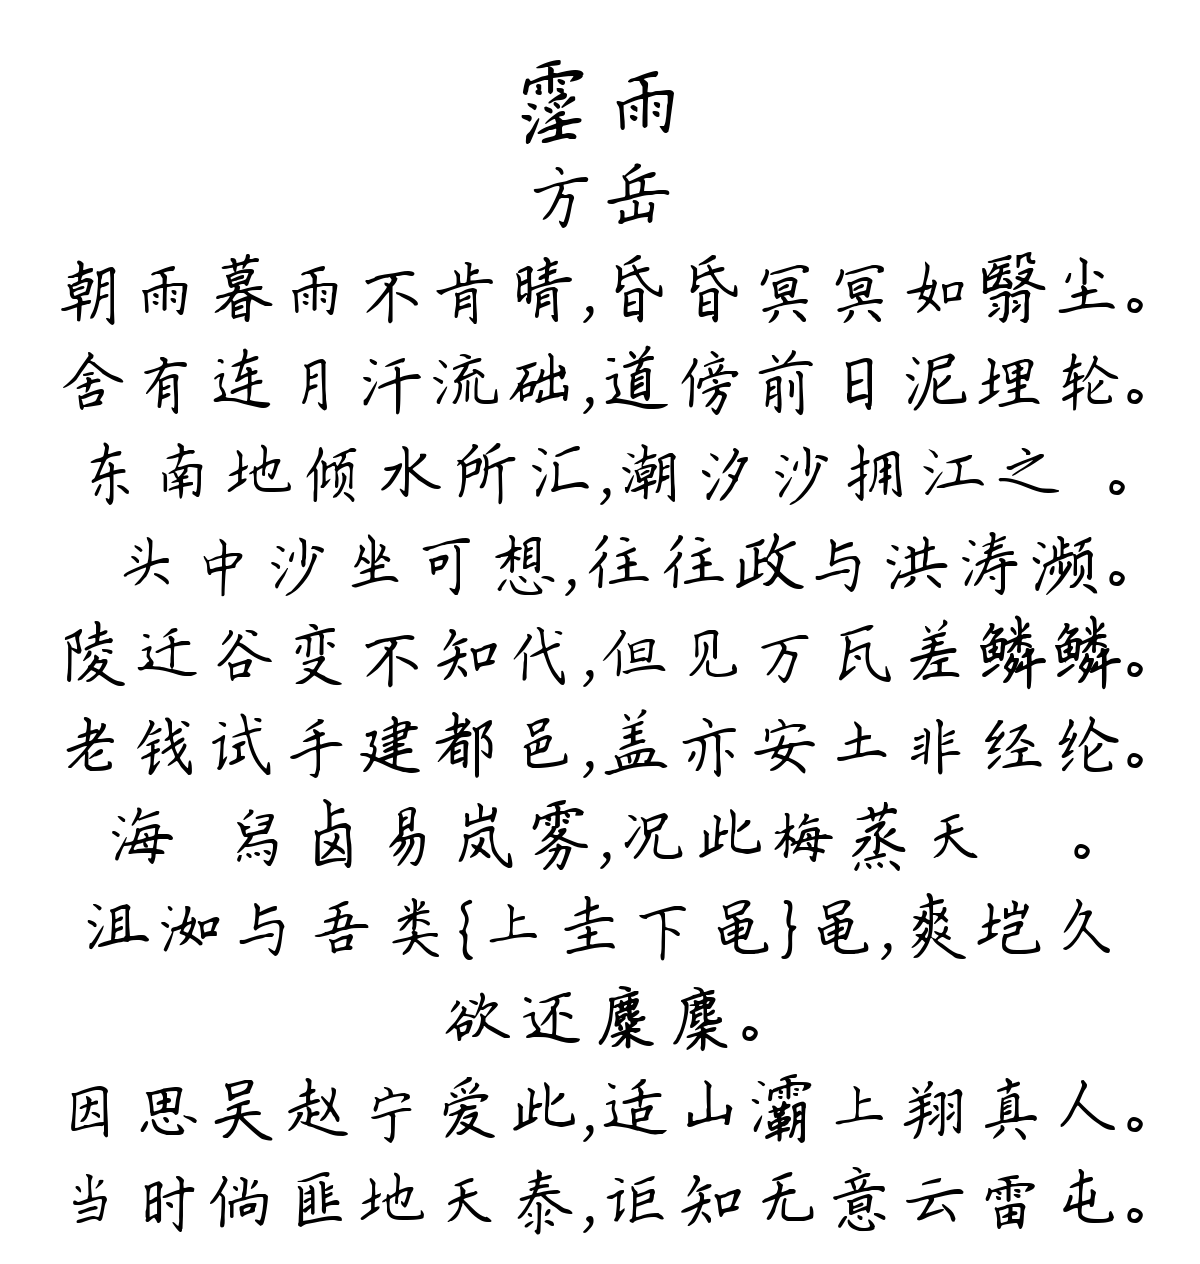 霪雨
方岳
朝雨暮雨不肯晴,昏昏冥冥如翳尘。
舍有连月汗流础,道傍前日泥埋轮。
东南地倾水所汇,潮汐沙拥江之 。
头中沙坐可想,往往政与洪涛濒。
陵迁谷变不知代,但见万瓦差鳞鳞。
老钱试手建都邑,盖亦安土非经纶。
海 舄卤易岚雾,况此梅蒸天 。
沮洳与吾类{上圭下黾}黾,爽垲久
欲还麋麇。
因思吴赵宁爱此,适山灞上翔真人。
当时倘匪地天泰,讵知无意云雷屯。